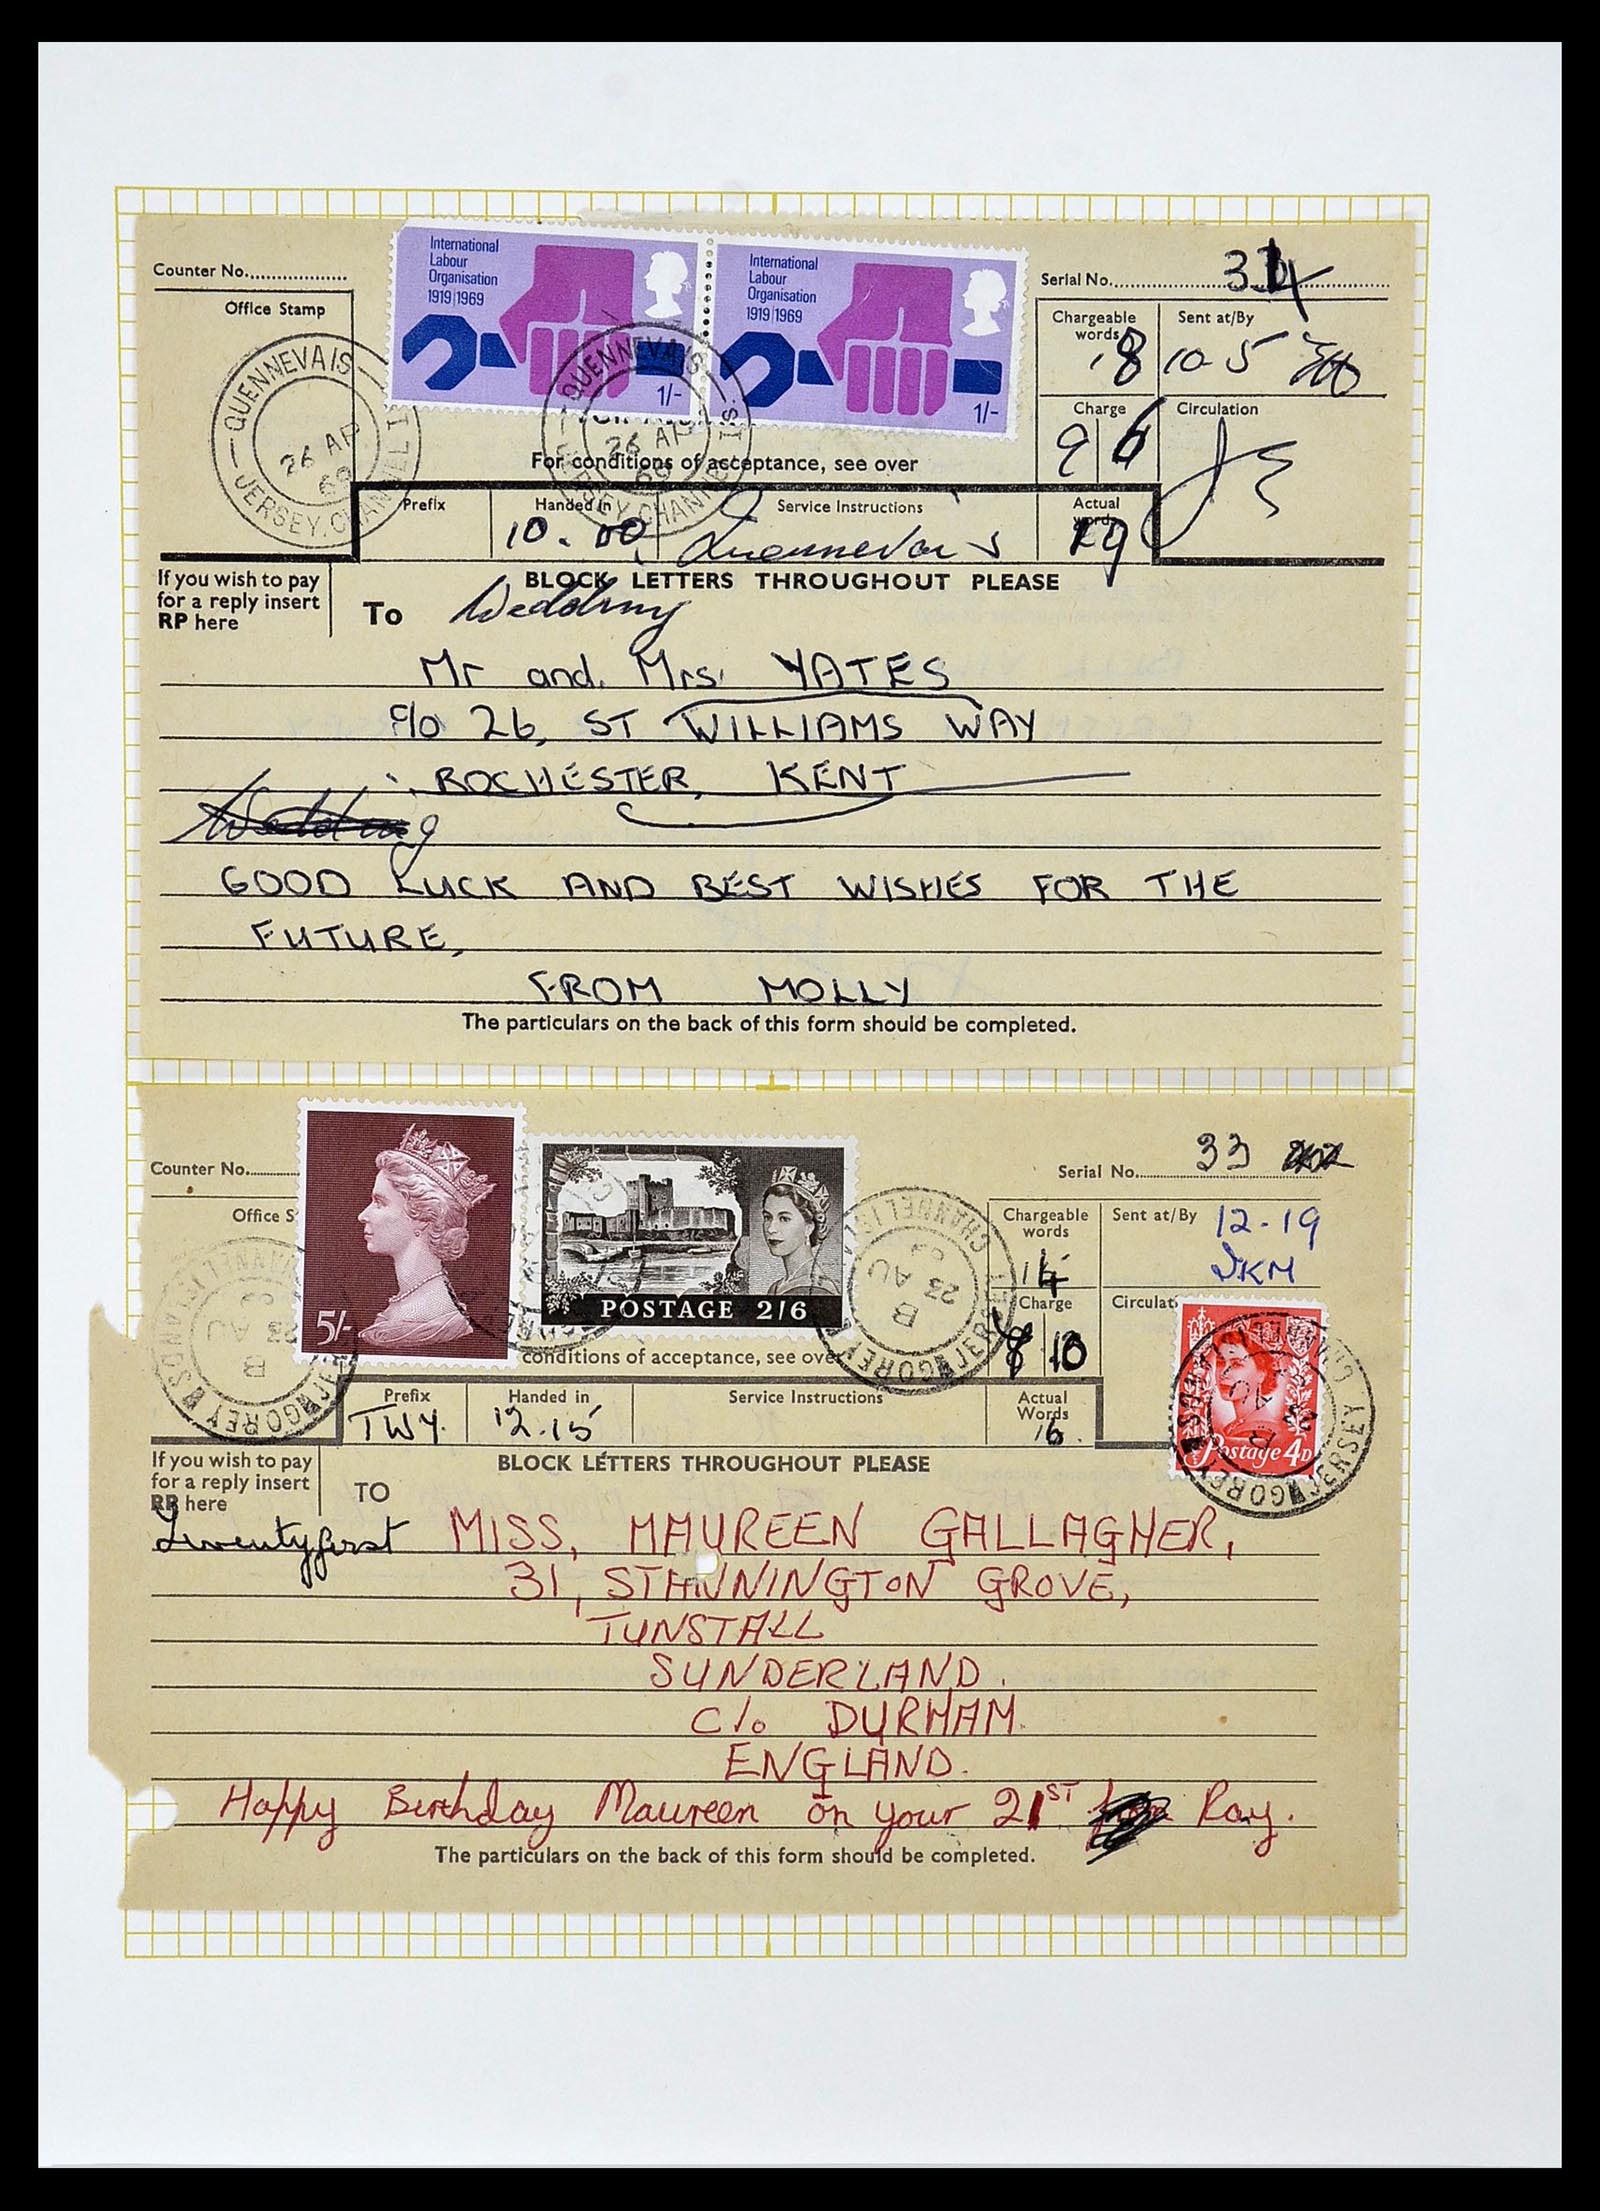 International
Labour
Organisation
1919 1969
1/-
International
Labour
Organisation
1919 1969
1/-
Counter No.
Serial No.
Office Stamp
Chargeable
words
18
Sent at/By
10-5
QUENNEVAIS
26 AP
69
JERSEY. CHANNEL I
QUENNEVAIS
26 AP
69
JERSEY. CHANNEL IS.
Charge
9 6
Circulation
For conditions of acceptance, see over
Prefix
Handed in
10.00
Service Instructions
Quennevais
Actual
words
19
If you wish to pay
for a reply insert
RP here
BLOCK LETTERS THROUGHOUT PLEASE
To
Wedding
Mr and Mrs. YATES
c/o 26, ST WILLIAMS WAY
ROCHESTER, KENT
Wedding
GOOD LUCK AND BEST WISHES FOR THE
FUTURE,
FROM MOLLY
The particulars on the back of this form should be completed.
5/-
POSTAGE 2/6
Counter No.
Serial No. 33
Office S
Chargeable
words
14
Sent at/By
12-19
DKM
Charge
8 10
Circulat
Postage 4D
GOREY JERSEY
CHANNEL ISLANDS
B
23 AU
conditions of acceptance, see over
Prefix
TWY.
Handed in
12.15
Service Instructions
Actual
Words
16.
If you wish to pay
for a reply insert
RP here
BLOCK LETTERS THROUGHOUT PLEASE
TO
Twentyfirst
MISS, MAUREEN GALLAGHER,
31, STANNINGTON GROVE,
TUNSTALL
SUNDERLAND.
C/o DURHAM.
ENGLAND.
Happy Birthday Maureen on your 21ST Ray.
The particulars on the back of this form should be completed.